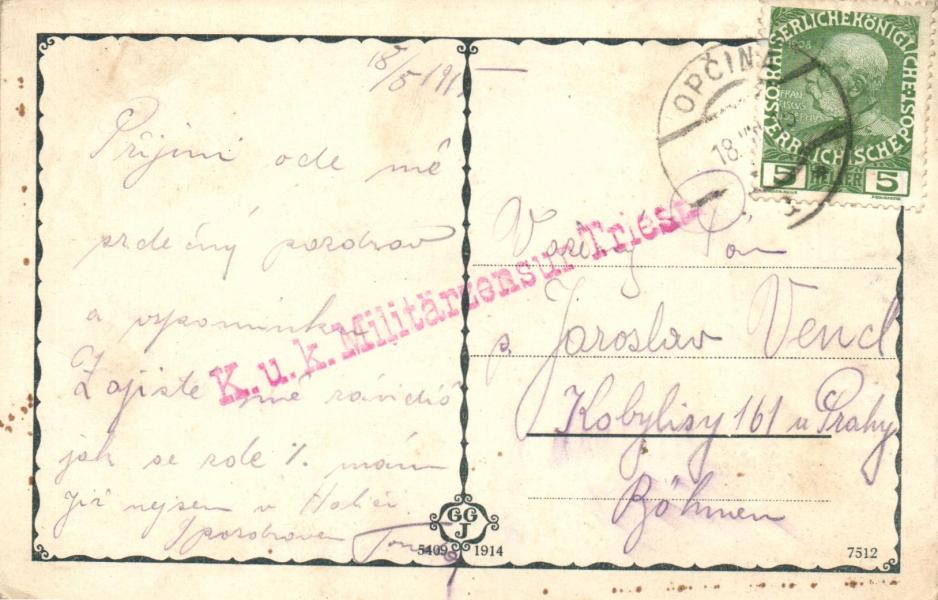 18/5 1915
Přijmi ode mě
srdečný pozdrav
a vzpomínku
Zajisté mně závidíš
jak se zde mám
Již nejsem v Haliči
S pozdravem
K.u.k. Militärzensur Triest
OPČINA
18.
KAISERLICHE KÖNIGLICHE ÖSTERREICHISCHE POST
1908
FRAN
CISCUS
IOSEPHUS
5 HELLER 5
Vzácný Pán
p. Jaroslav Vencl
Kobylisy 161 u Prahy
Böhmen
GG
J
5409 1914
7512